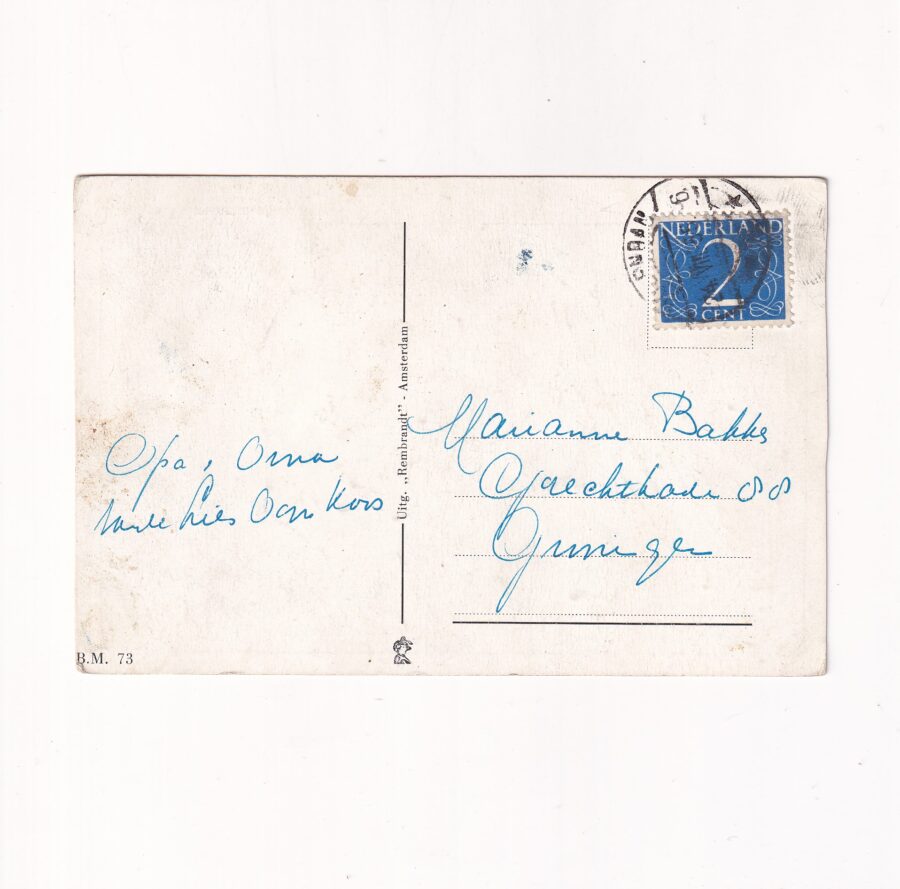 NEDERLAND
2
CENT
Opa, Oma
tante Lies Oom Koos
Uitg. „Rembrandt" - Amsterdam
Marianne Bakker
88
Groningen
B.M. 73